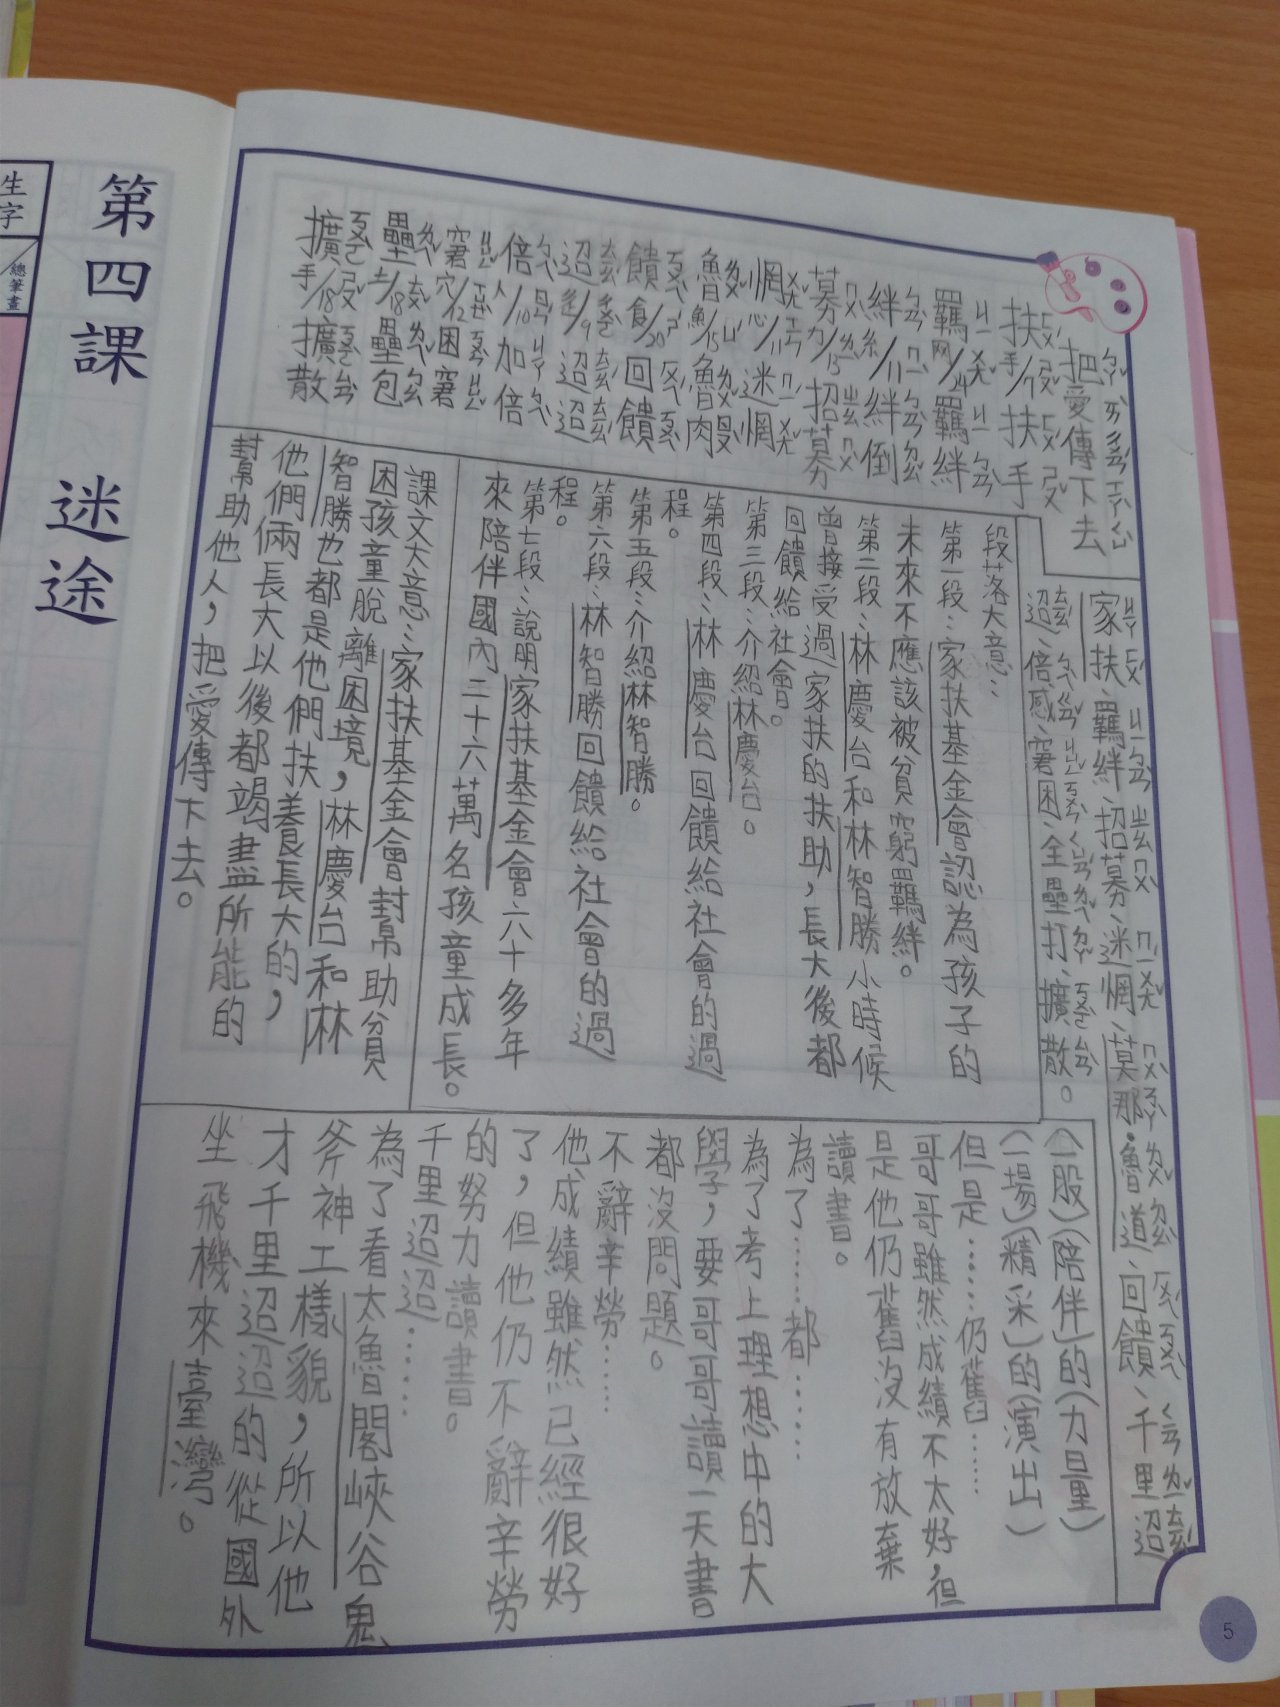 把愛傳下去
扶手/7扶手
羈网/24羈絆
絆糸/11絆倒
募力/13招募
惘心/11迷惘
魯魚/15魯肉
饋食/20回饋
迢辵/9迢迢
倍人/10加倍
窘穴/12困窘
壘土/18壘包
擴手/18擴散
家扶、羈絆、招募、迷惘、莫那·魯道、回饋、千里迢
迢、倍感、窘困、全壘打、擴散。
段落大意：
第一段：家扶基金會認為孩子的
未來不應該被貧窮羈絆。
第二段：林慶台和林智勝小時候
曾接受過家扶的扶助，長大後都
回饋給社會。
第三段：介紹林慶台。
第四段：林慶台回饋給社會的過
程。
第五段：介紹林智勝。
第六段：林智勝回饋給社會的過
程。
第七段：說明家扶基金會六十多年
來陪伴國內三十六萬名孩童成長。
課文大意：家扶基金會幫助貧
困孩童脫離困境，林慶台和林
智勝也都是他們扶養長大的，
他們倆長大以後都竭盡所能的
幫助他人，把愛傳下去。
(一股)(陪伴)的(力量)
(一場)(精采)的(演出)
但是……仍舊……
哥哥雖然成績不太好，但
是他仍舊沒有放棄
讀書。
為了……都……
為了考上理想中的大
學，要哥哥讀一天書
都沒問題。
不辭辛勞……
他成績雖然已經很好
了，但他仍不辭辛勞
的努力讀書。
千里迢迢……
為了看太魯閣峽谷鬼
斧神工樣貌，所以他
才千里迢迢的從國外
坐飛機來臺灣。
5
第四課 迷途
生字
總筆畫